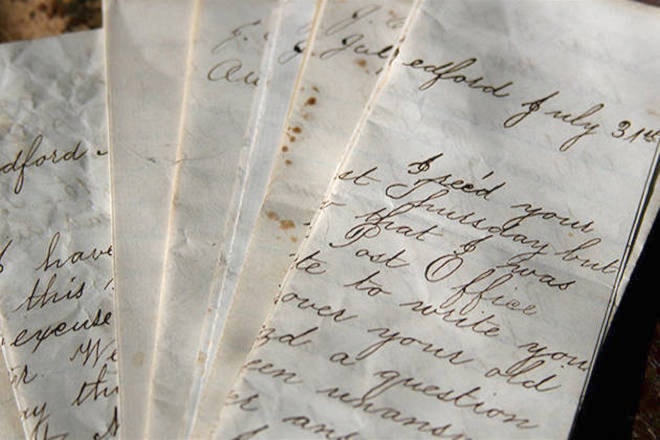 dford
I have
this
excuse
r. We
ay thi
J.
Au
J.
J. Jul
edford July 31st
I rec'd your
st Thursday but
that I was
Post Office
te to write you
over your old
zd a question
een unansw
er an